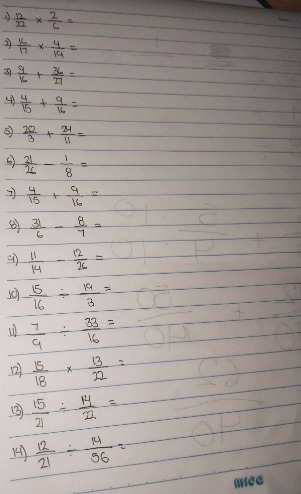 1) 12/22 × 2/6 =
2) 16/17 × 4/19 =
3) 9/16 + 36/27 =
4) 4/15 + 9/16 =
5) 20/3 + 24/11 =
6) 21/26 - 1/8 =
7) 4/15 + 9/16 =
8) 31/6 - 8/7 =
9) 11/14 - 12/26 =
10) 15/16 ÷ 19/3 =
11) 7/9 ÷ 33/16 =
12) 15/18 × 13/22 =
13) 15/21 ÷ 14/22 =
14) 12/21 ÷ 14/56 =